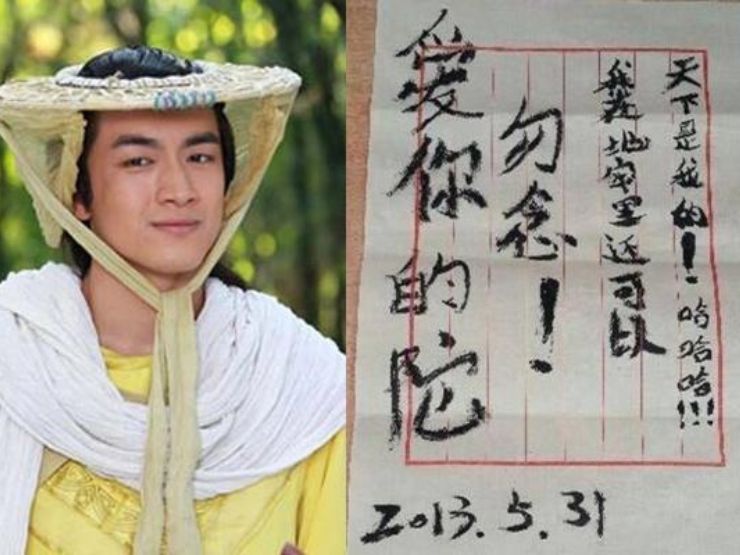 天下是我的！哈哈哈!!!
我在地宫里还可以
勿念！
爱你的陀
2013.5.31